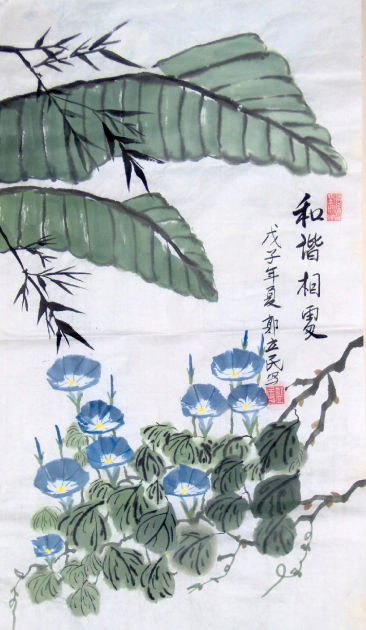 和谐相处
戊子年夏 郭立民写